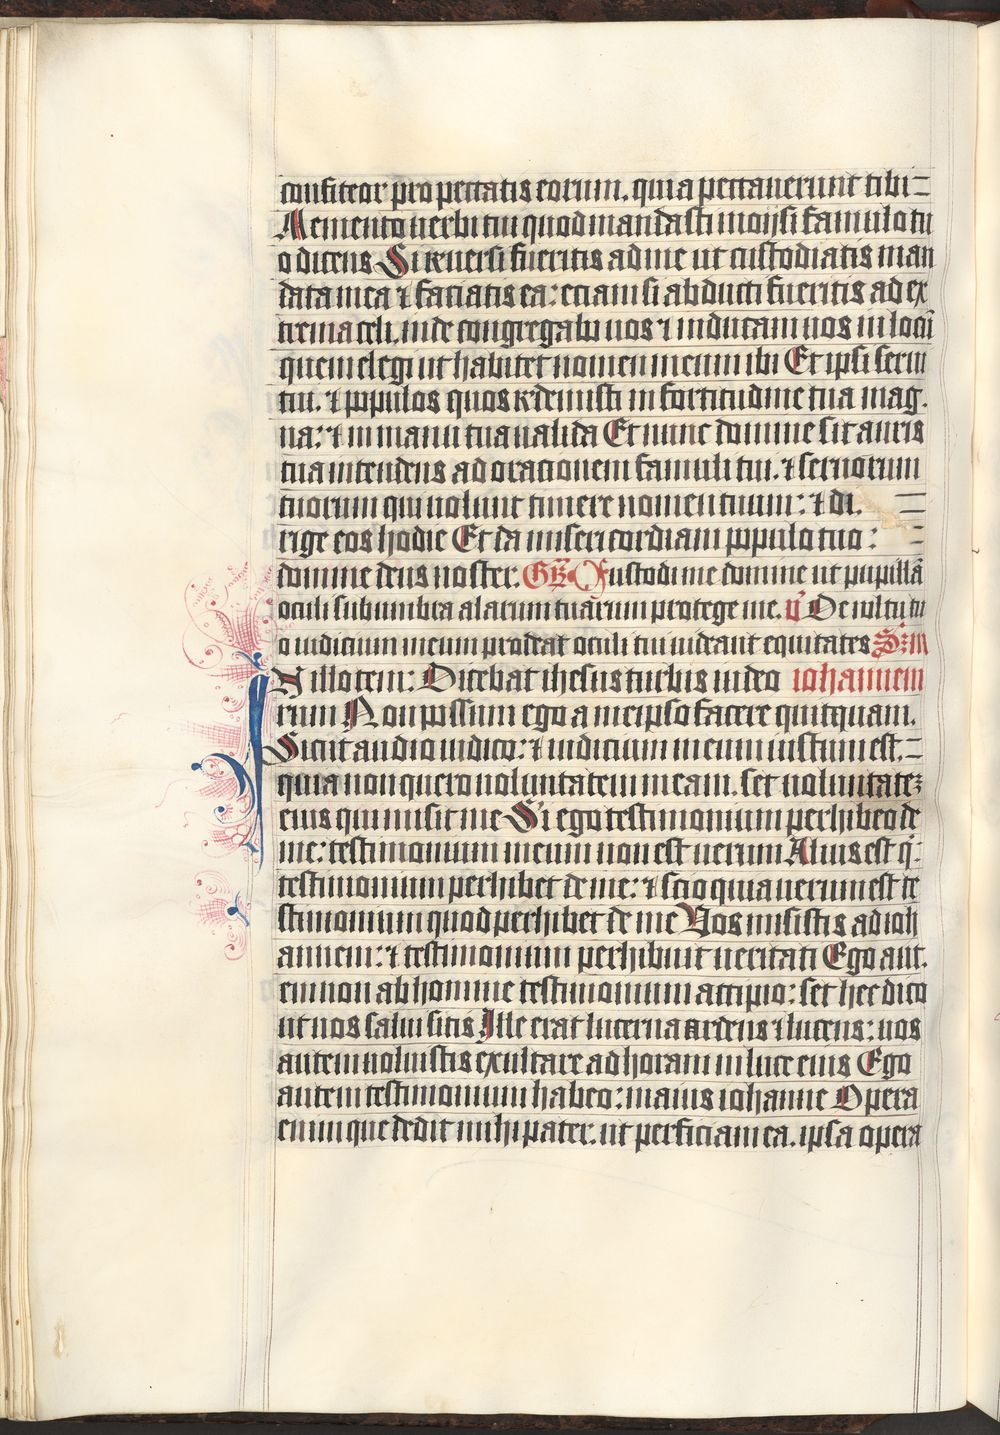 confiteor pro peccatis eorum. quia peccauerunt tibi
Memento uerbi tui quod mandasti moysi famulo tu
o dicens Si reuersi fueritis ad me ut custodiatis man
data mea ⁊ faciatis ea: etiam si abducti fueritis ad ex
trema celi. inde congregabo uos ⁊ inducam uos in locū
quem elegi ut habitet nomen meum ibi Et ipsi serui
tui. ⁊ populos quos redemisti in fortitudine tua mag.
na: ⁊ in manu tua ualida Et nunc domine sit auris
tua intendens ad orationem famuli tui. ⁊ seruorum
tuorum qui uolunt timere nomen tuum: ⁊ di.
rige eos hodie Et da misericordiam populo tuo:
domine deus noster. GR Custodi me domine ut pupillā
oculi sub umbra alarum tuarum protege me. V De uultu tu
o iudicium meum prodeat oculi tui uideant equitates S:m
In illo tem: Dicebat ihesus turbis iudeo iohannem
rum Non possum ego a meipso facere quicquam.
Sicut audio iudico: ⁊ iudicium meum iustum est.
quia non quero uoluntatem meam. set uoluntatēz
eius qui misit me Si ego testimonium perhibeo de
me: testimonium meum non est uerum Alius est q̄:
testimonium perhibet de me: ⁊ scio quia uerum est te
stimonium quod perhibet de me Uos misistis ad ioh
annem: ⁊ testimonium perhibuit ueritati Ego aut.
em non ab homine testimonium accipio: set hec dico
ut uos salui sitis Ille erat lucerna ardens ⁊ lucens: uos
autem uoluistis exultare ad horam in luce eius Ego
autem testimonium habeo: maius iohanne Opera
enim que dedit mihi pater. ut perficiam ea. ipsa opera